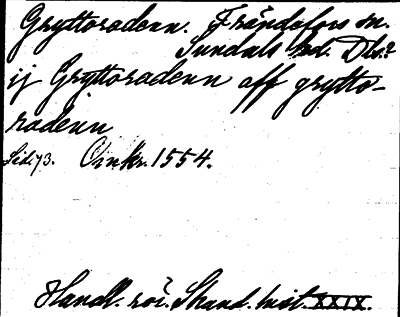 Gryttoradenn. Frändefors sn.
Sundals hd. Dls.
ij Gryttoradenn aff grytto-
radenn
Sid. 73. Omkr. 1554.
Handl. rör. Skand. hist. XXIX.